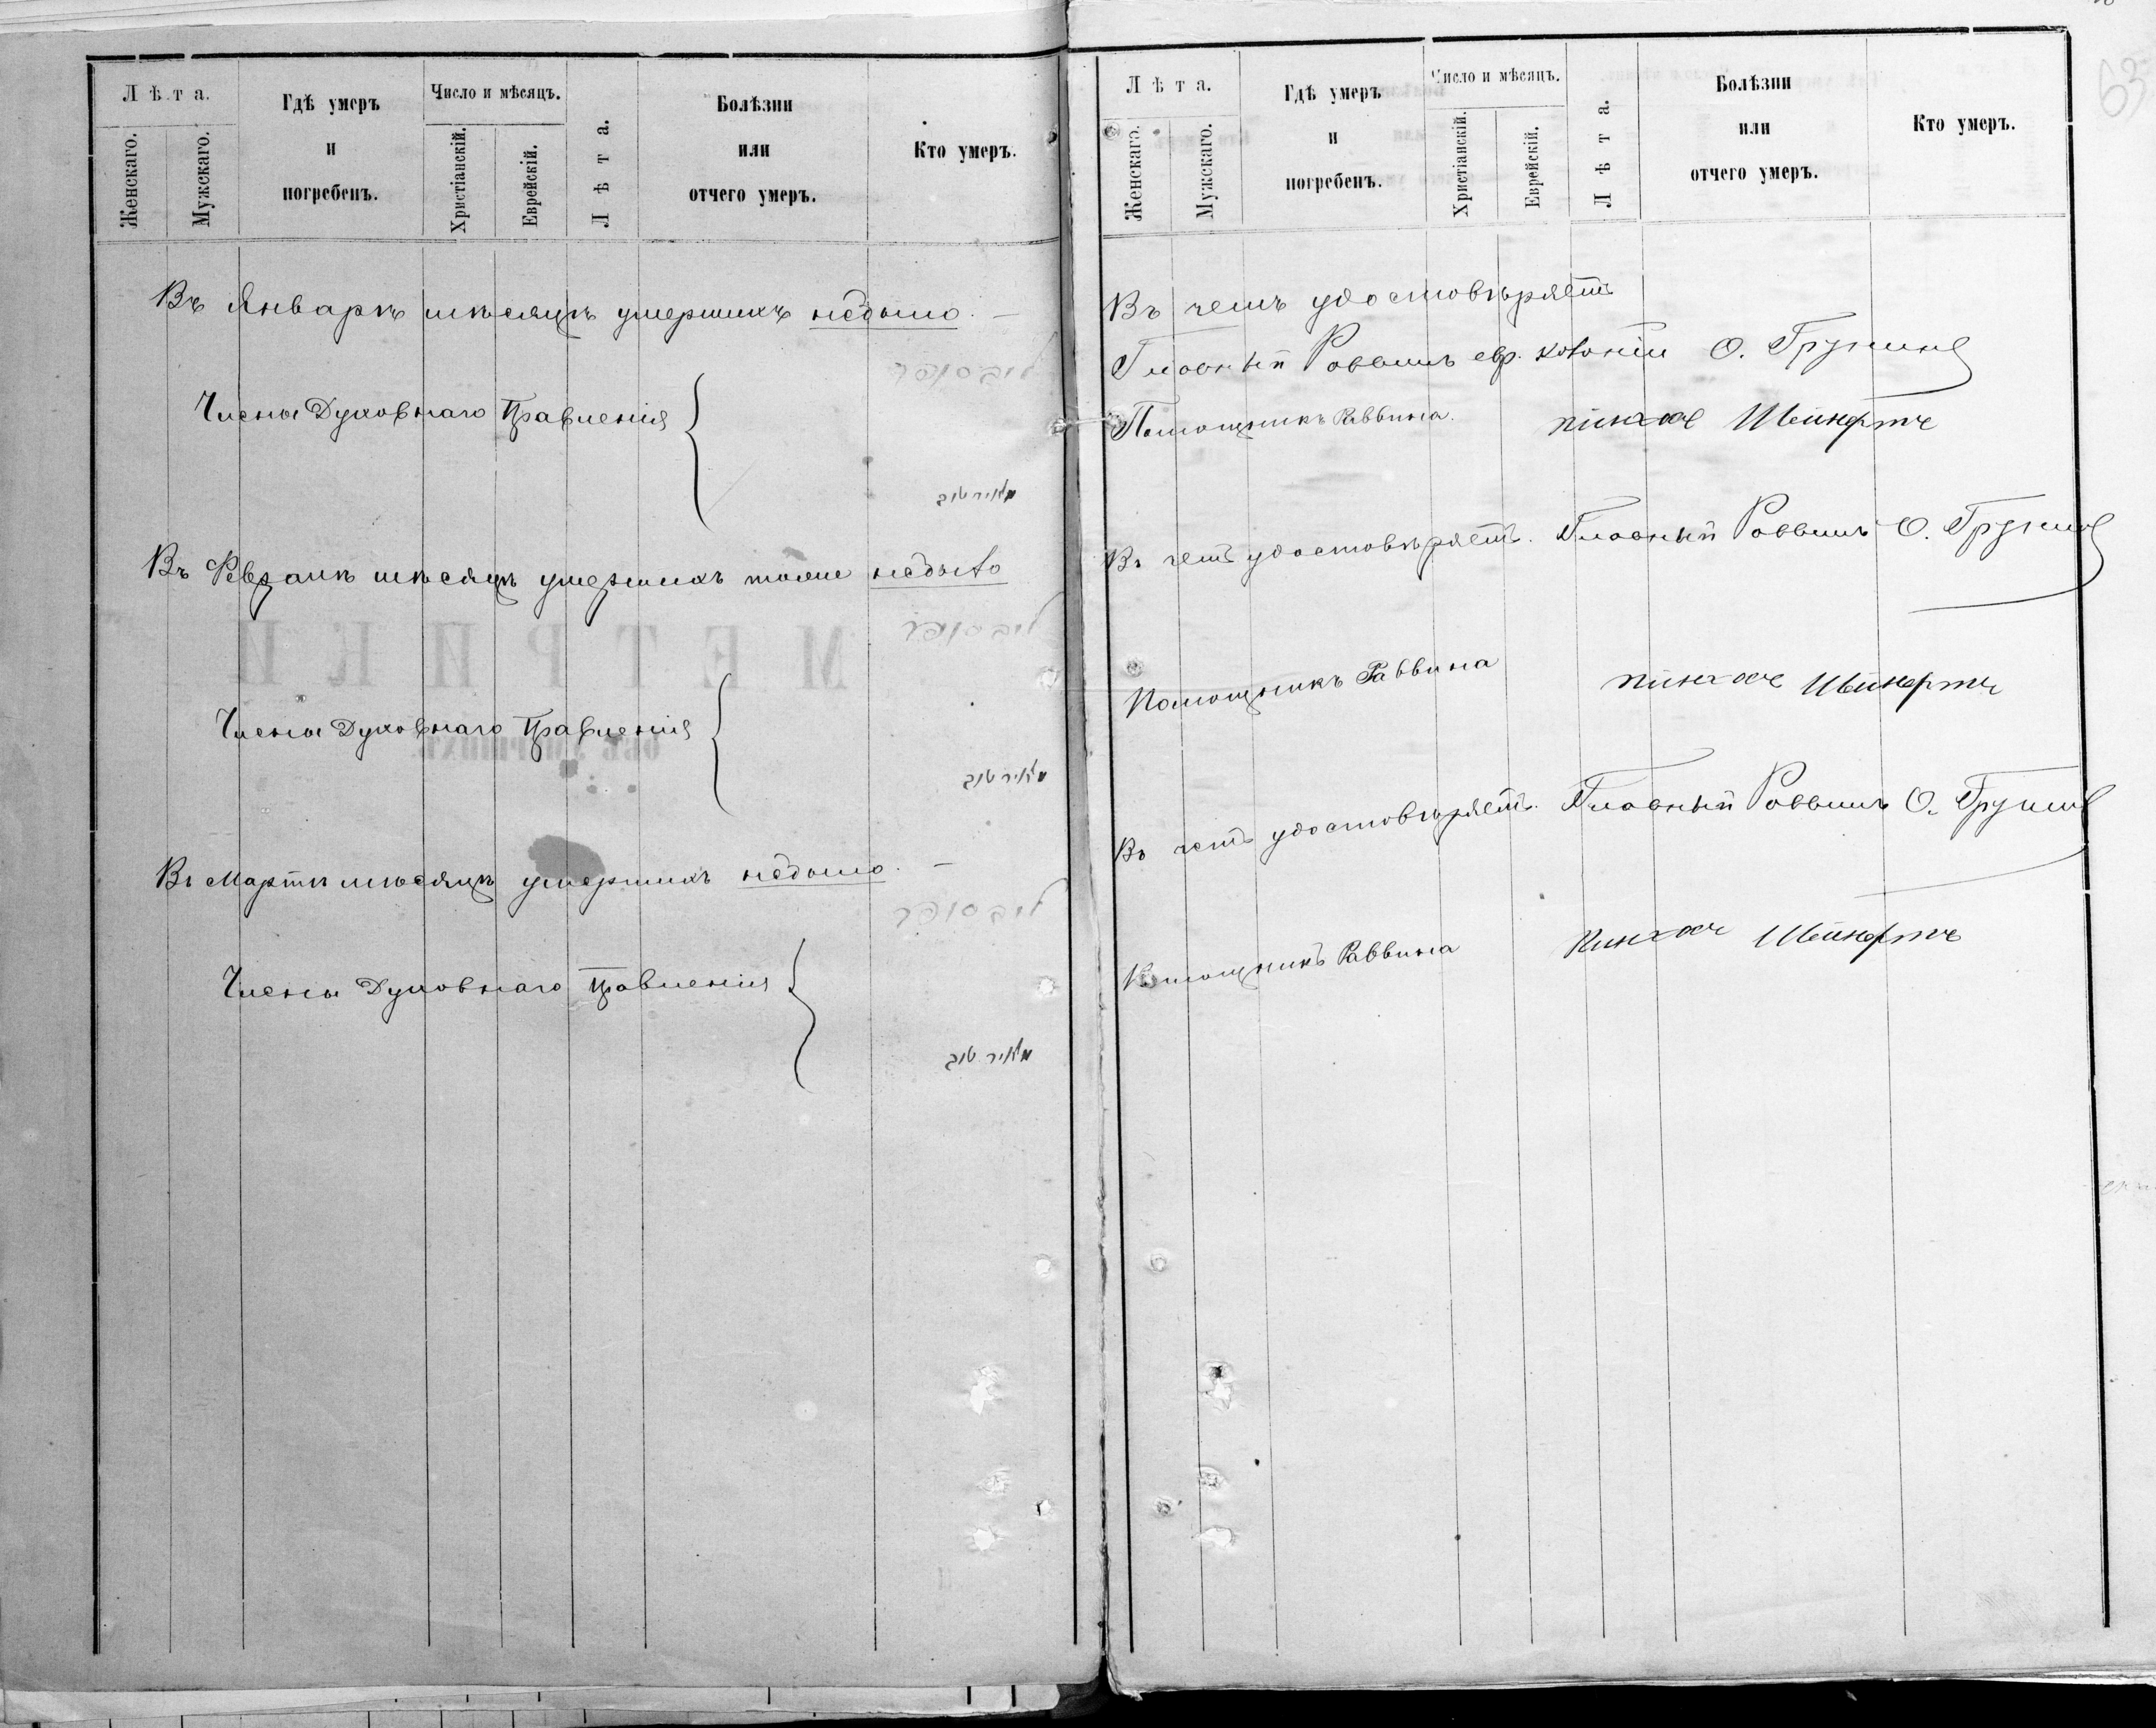 Лѣта.
Женскаго.
Мужскаго.
Гдѣ умеръ
и
погребенъ.
Число и мѣсяцъ.
Христіанскій.
Еврейскій.
Лѣта.
Болѣзни
или
отчего умеръ.
Кто умеръ.
Въ Январѣ мѣсяцѣ умершихъ небыло. —
Члены Духовнаго Правленія
מאיר טוב
Въ Февралѣ мѣсяцѣ умершихъ тоже небыло
Члены Духовнаго Правленія
מאיר טוב
Въ Мартѣ мѣсяцѣ умершихъ небыло. —
Члены Духовнаго Правленія
מאיר טוב
63
Лѣта.
Женскаго.
Мужскаго.
Гдѣ умеръ
и
погребенъ.
Число и мѣсяцъ.
Христіанскій.
Еврейскій.
Лѣта.
Болѣзни
или
отчего умеръ.
Кто умеръ.
Въ чемъ удостовѣряетъ
Главный Раввинъ евр. колоніи О.
Помощникъ Раввина. Пинхас
Въ чемъ удостовѣряетъ. Главный Раввинъ О.
Помощникъ Раввина Пинхас
Въ чемъ удостовѣряетъ. Главный Раввинъ О.
Помощникъ Раввина Пинхас